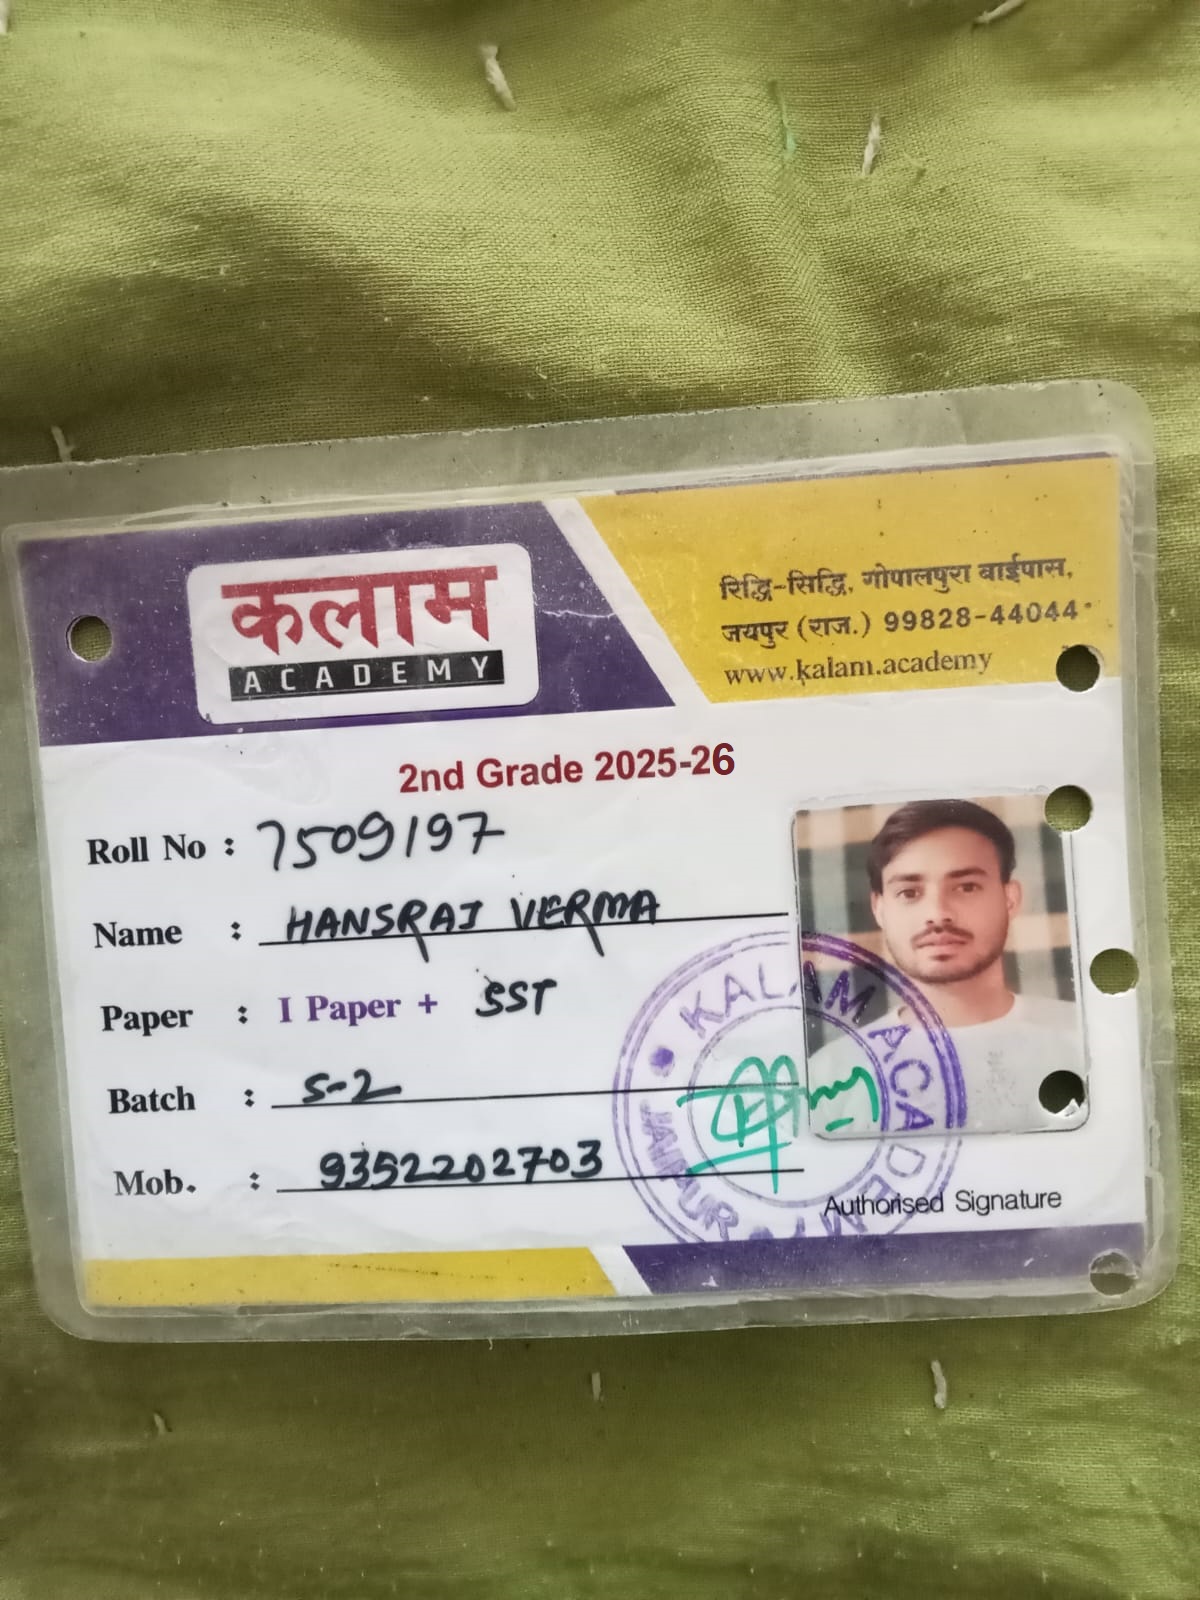 कलाम
ACADEMY
रिद्धि-सिद्धि, गोपालपुरा बाईपास,
जयपुर (राज.) 99828-44044
www.kalam.academy
2nd Grade 2025-26
Roll No : 7509197
Name : HANSRAJ VERMA
Paper : I Paper + SST
Batch : S-2
Mob. : 9352202703
KALAM ACADEMY
JAIPUR
Authorised Signature